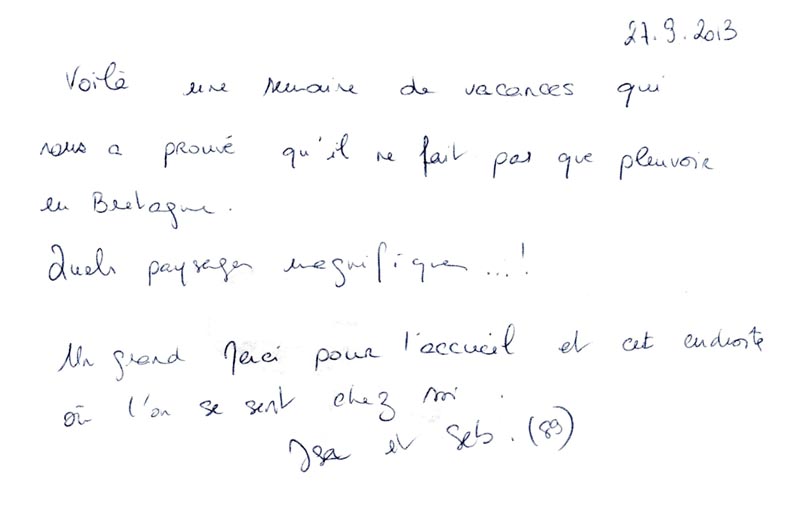 27.9.2013
Voilà une semaine de vacances qui
nous a prouvé qu'il ne fait pas que pleuvoir
en Bretagne.
Quels paysages magnifiques ...!
Un grand Merci pour l'accueil et cet endroite
où l'on se sent chez soi.
Isa et Seb. (89)